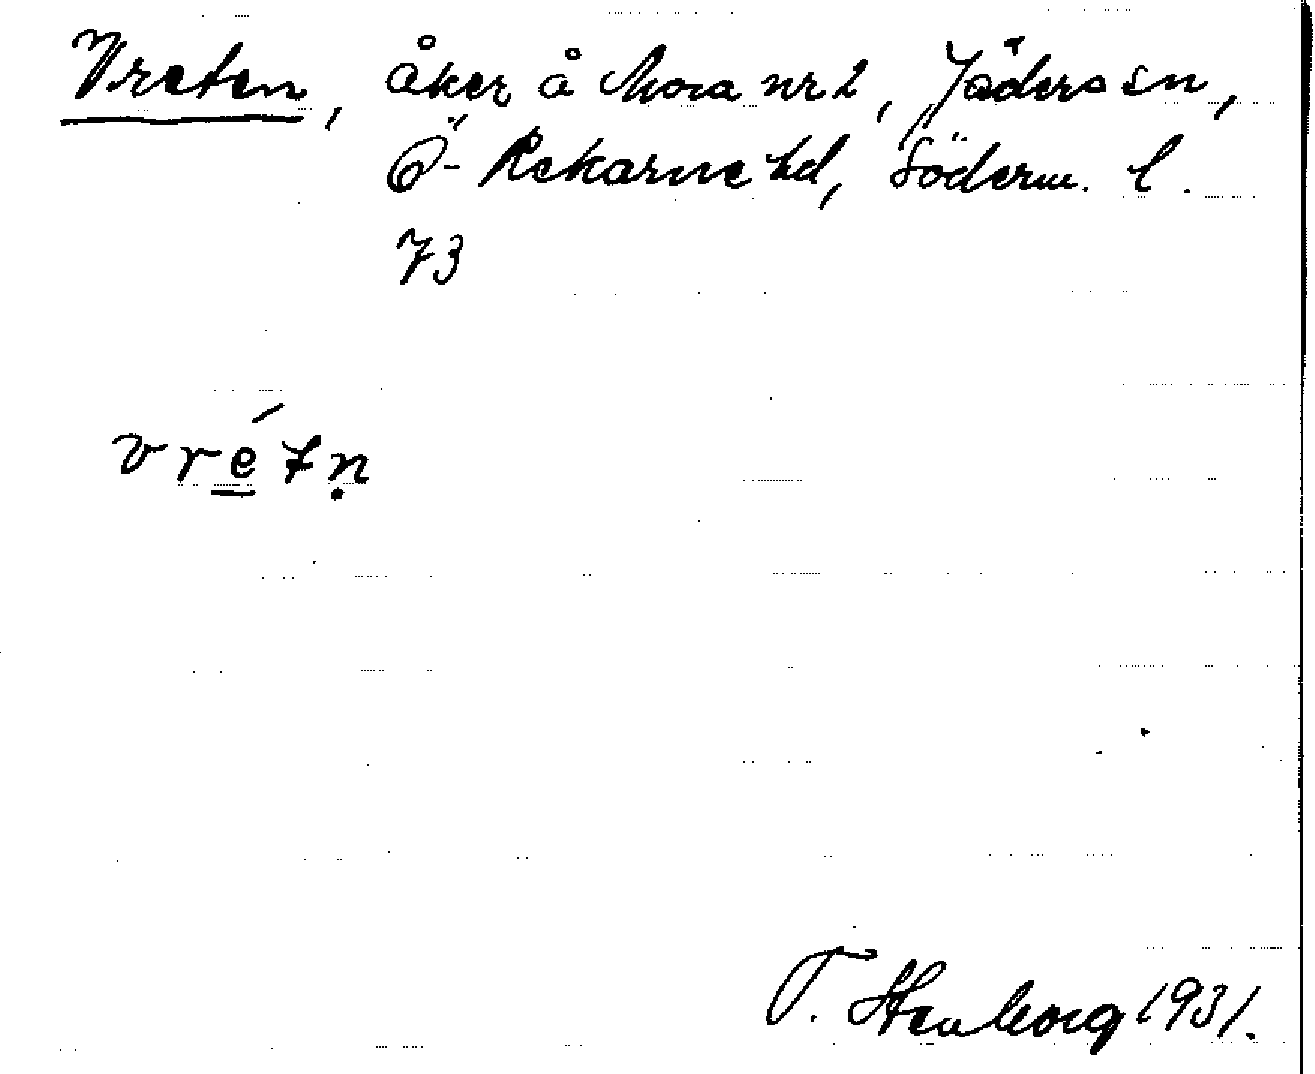 Vreten, åker å Mora nr 2, Jäders sn,
Ö- Rekarne hd, Söderm. l.
73
vrétṇ
T. Stenborg 1931.